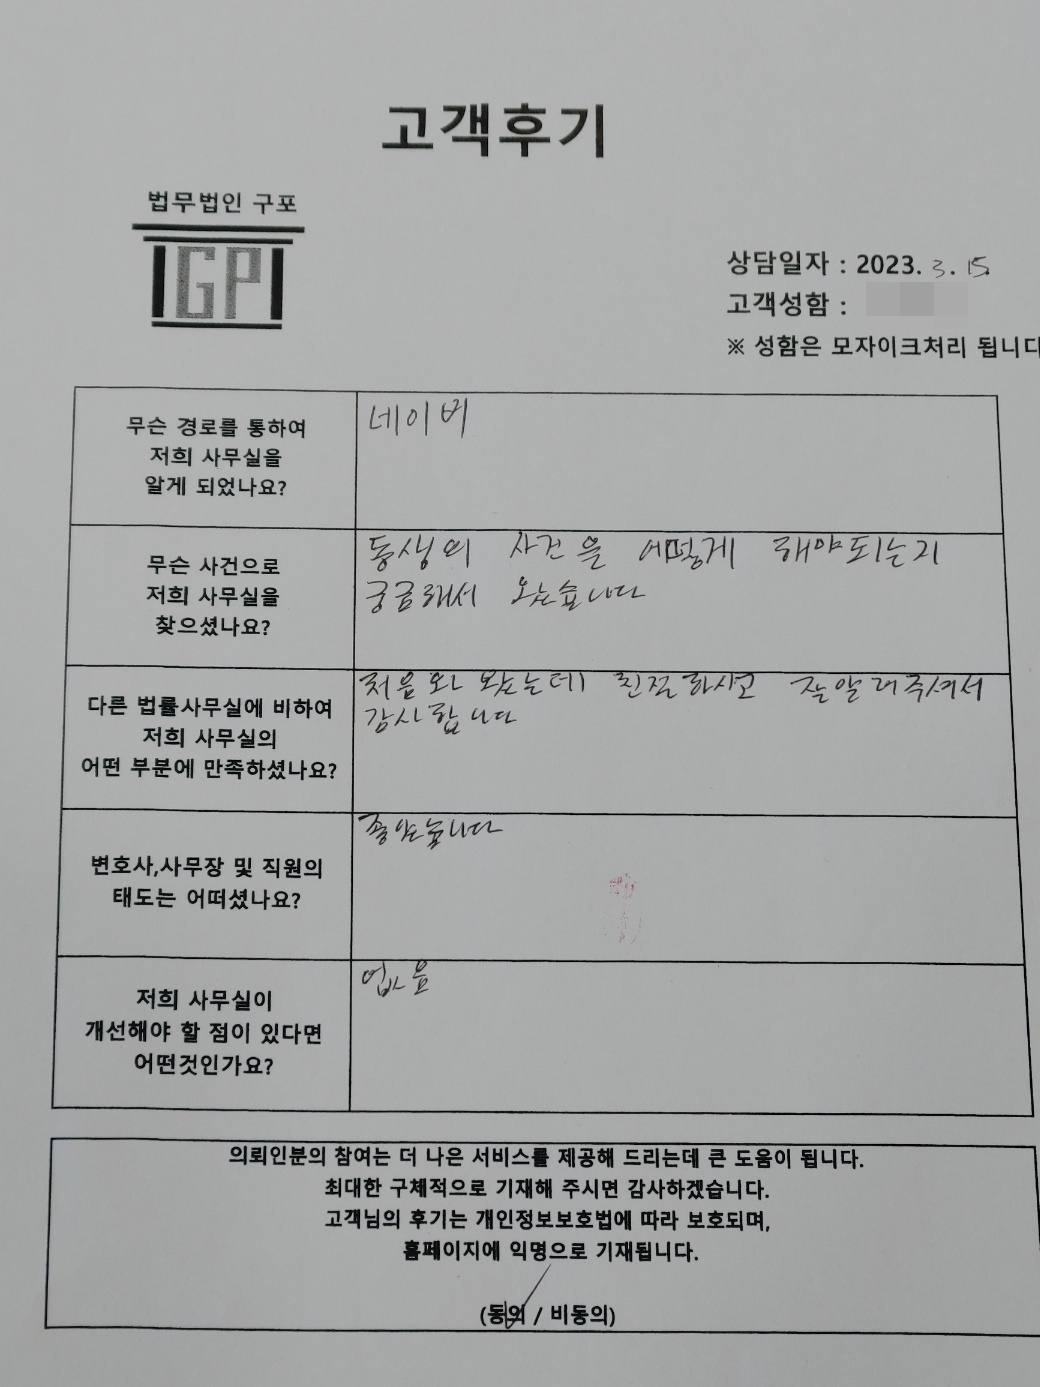 고객후기
법무법인 구포
GP
상담일자 : 2023. 3. 15.
고객성함 :
※ 성함은 모자이크처리 됩니다
무슨 경로를 통하여
저희 사무실을
알게 되었나요?
네이버
무슨 사건으로
저희 사무실을
찾으셨나요?
동생의 사건을 어떻게 해야되는지
궁금해서 왔습니다
다른 법률사무실에 비하여
저희 사무실의
어떤 부분에 만족하셨나요?
처음 와 봤는데 친절하시고 잘알려주셔서
감사합니다
변호사,사무장 및 직원의
태도는 어떠셨나요?
좋았습니다
저희 사무실이
개선해야 할 점이 있다면
어떤것인가요?
없음
의뢰인분의 참여는 더 나은 서비스를 제공해 드리는데 큰 도움이 됩니다.
최대한 구체적으로 기재해 주시면 감사하겠습니다.
고객님의 후기는 개인정보보호법에 따라 보호되며,
홈페이지에 익명으로 기재됩니다.
(동의 / 비동의)